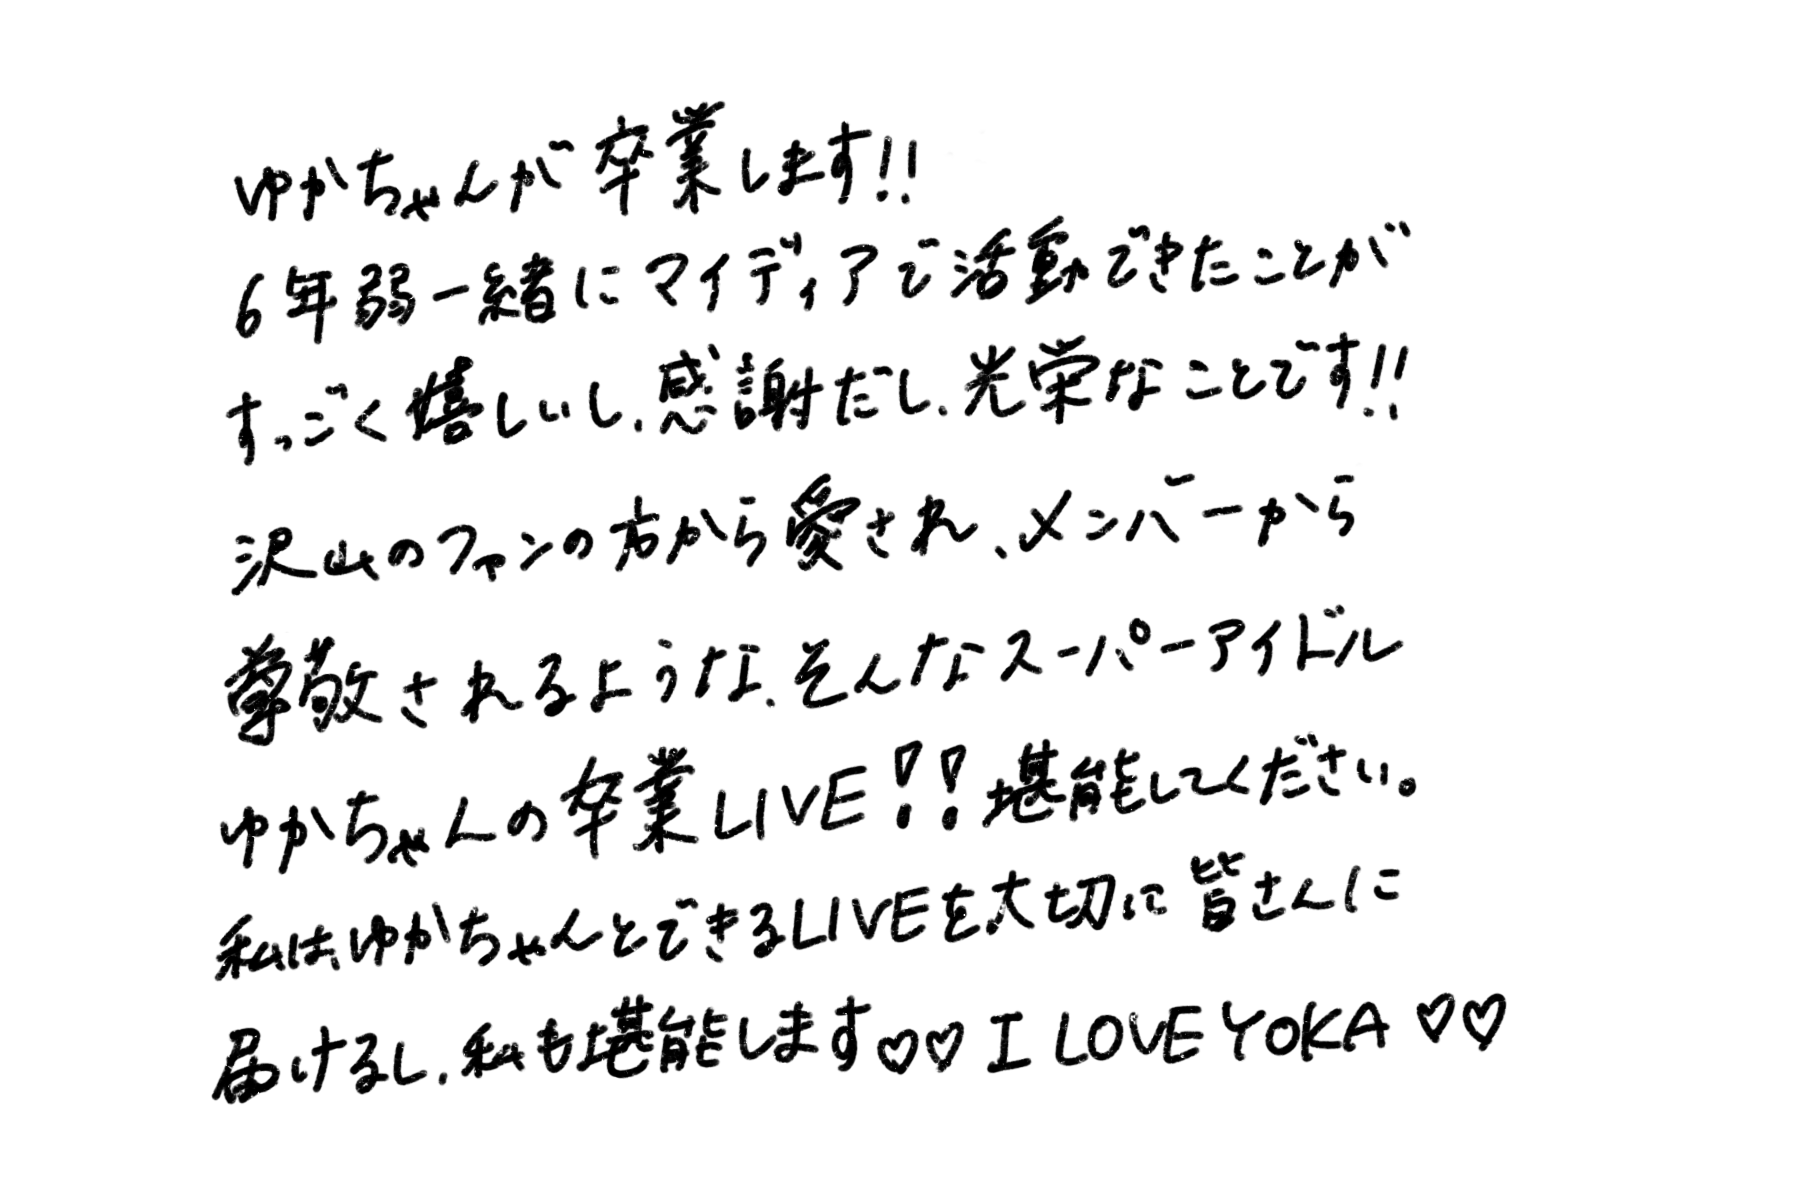 ゆかちゃんが卒業します!!
6年弱一緒にマイディアで活動できたことが
すっごく嬉しいし、感謝だし、光栄なことです!!
沢山のファンの方から愛され、メンバーから
尊敬されるような、そんなスーパーアイドル
ゆかちゃんの卒業LIVE!!堪能してください。
私は、ゆかちゃんとできるLIVEを、大切に皆さんに
届けるし、私も堪能します♡♡ I LOVE YOKA ♡♡